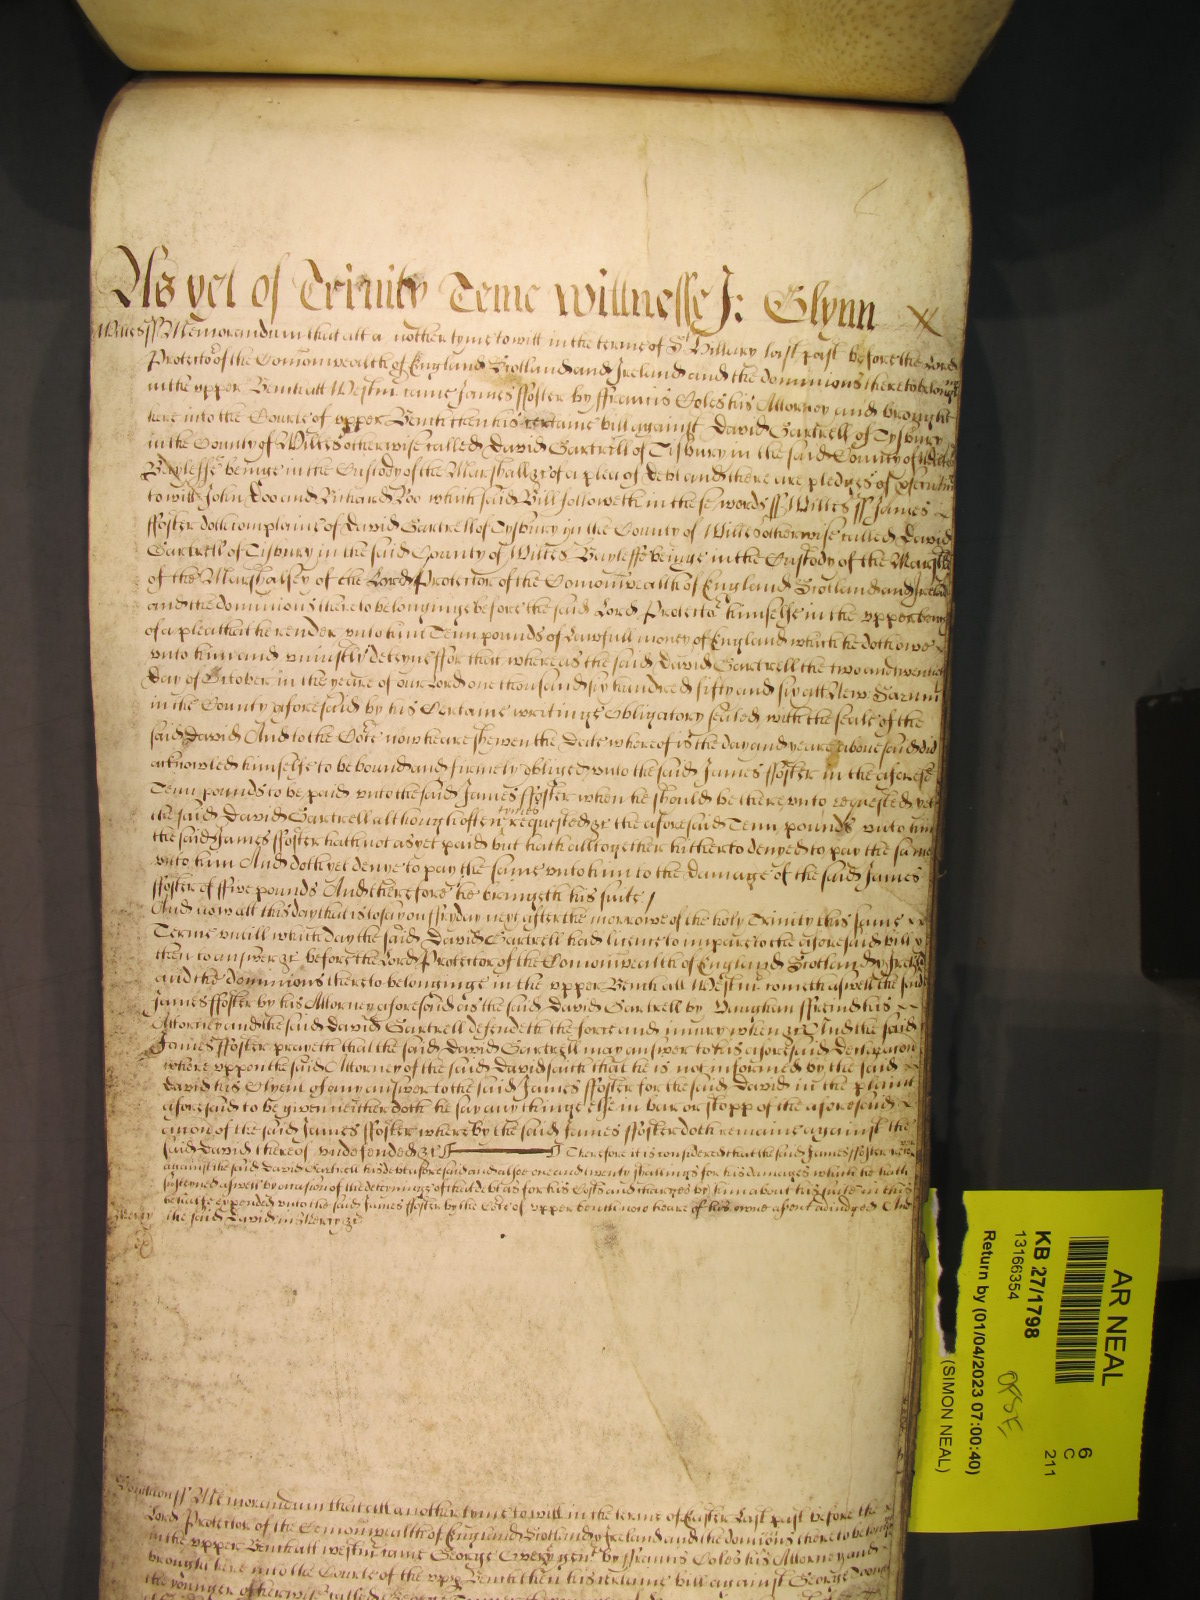 As yet of Trinity Terme Wittnesse J: Glynn
Wiltes ss Memorandum that att a nother tyme to witt in the terme of St Hillary last past before the Lord
Protector of the Comonwealth of England Scotland and Ireland and the dominions thereto belonginge
in the upper Bench att Westmr came James ffoster by ffrancis Coles his Attorney and brought
here into the Courte of upper Bench then his certaine bill against David Gartrell of Tysbury
in the County of Wiltes otherwise called David Gartrell of Tisbury in the said County of Wiltes
Bayleffe beinge in the Custody of the Marshall &c of a plea of Debt and there are pledges of
to witt John Doo and Richard Roo which said Bill followeth in these words ss Wiltes ss James
ffoster doth complaine of David Gartrell of Tysbury in the County of Wiltes otherwise called David
Gartrell of Tisbury in the said County of Wiltes Bayleffe beinge in the Custody of the Marshall
of the Marshalsey of the Lord Protector of the Comonwealth of England Scotland and Ireland
and the dominions thereto belonginge before the said Lord Protector himselfe in the upper bench
of a plea that he render unto him Tenn pounds of Lawfull money of England which he doth owe
unto him and uniustly deteyne ffor that whereas the said David Gartrell the two and twentieth
day of October in the yeare of our Lord one thousand six hundred fifty and six att New Sarum
in the County aforesaid by his Certaine writinge Obligatory sealed with the seale of the
said David And to the Cote now heare shewen the Date whereof is the day and yeare abovesaid did
acknowled himselfe to be bound and firmely obliged unto the said James ffoster in the aforese
Tenn pounds to be paid unto the said James ffoster when he should be thereunto requested yet
the said David Gartrell although often tymes requested &c the aforesaid Tenn pounds unto him
the said James ffoster hath not as yet paid but hath alltogether hitherto denyed to pay the same
unto him And doth yet denye to pay the same unto him to the damage of the said James
ffoster of ffive pounds And therefore he bringeth his suite /
And now att this day that is to say on ffryday next after the morrowe of the holy Trinity this same
Terme untill which day the said David Gartrell had licence to imparle to the aforesaid bill &
then to answer &c before the Lord Protector of the Comonwealth of England Scotland & Ireland
and the dominions thereto belonginge in the upper Bench att Westmr cometh aswell the said
James ffoster by his Attorney aforesaid as the said David Gartrell by Vaughan ffreind his
Attorney and the said David Gartrell defendeth the force and iniury when &c And the said
James ffoster prayeth that the said David Gartrell may answer to his aforesaid Declaracon
whereuppon the said Attorney of the said David saith that he is not informed by the said
David his Clyent of any answer to the said James ffoster for the said David in the plaint
aforesaid to be given neither doth he say any thinge else in bar or stopp of the aforesaid
accon of the said James ffoster whereby the said James ffoster doth remaine against the
said David thereof undefended &c Therefore it is considered that the said James ffoster
against the said David Gartrell his debt aforesaid and alsoe one and twenty shillings for his damages which he hath
susteyned aswell by occasion of the deteyninge of that debt as for his Costs and charges by him about his suite in this
behalfe expended unto the said James ffoster by the Cote of upper bench now heare of his owne assent adiudged And
Mercy the said David in Mercy &c
ss Memorandum that att another tyme to witt in the terme of Easter Last past before the
Lord Protector of the Comonwealth of England Scotland & Ireland and the dominions thereto
in the upper Bench att westmr came George gent by ffrancis Coles his Attorney and
brought here into the Courte of the upp Bench then his certaine bill against George
the younger otherwise called
AR NEAL
KB 27/1798
13166354
Return by (01/04/2023 07:00:40)
(SIMON NEAL)
6
C
211